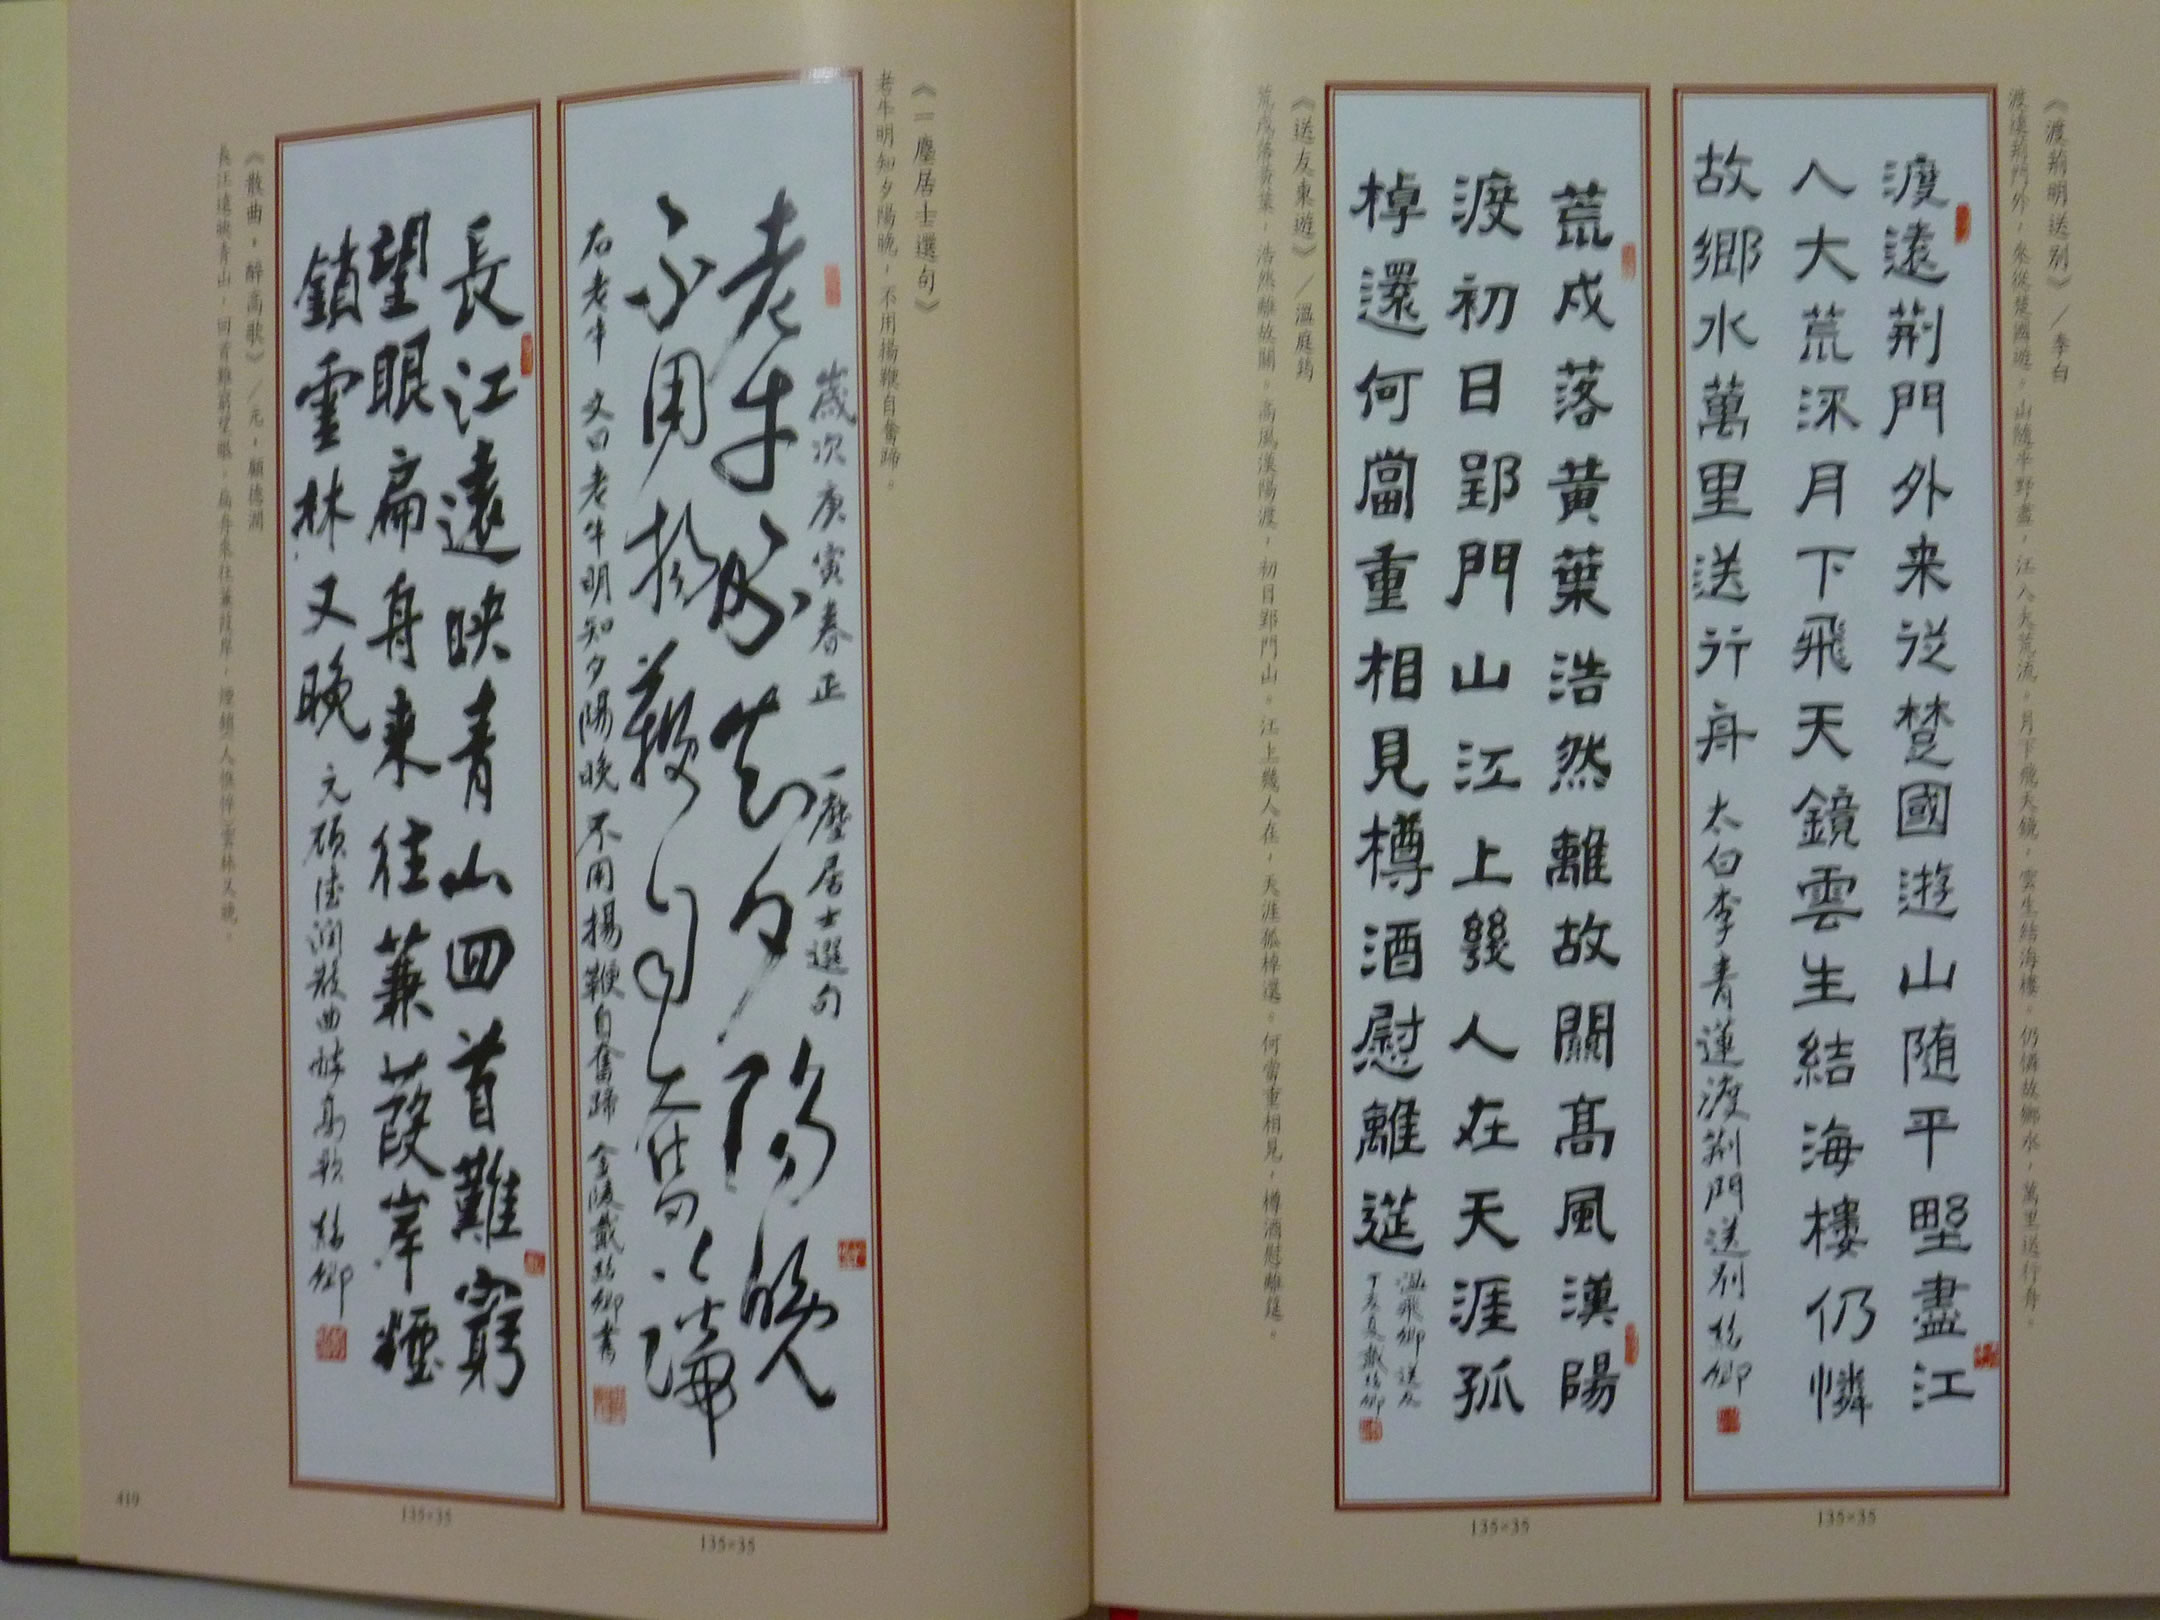 《渡荊明送別》／李白
渡遠荊門外，來從楚國遊。山隨平野盡，江入大荒流。月下飛天鏡，雲生結海樓。仍憐故鄉水，萬里送行舟。
渡遠荊門外来從楚國遊山随平野盡江
入大荒流月下飛天鏡雲生結海樓仍憐
故鄉水萬里送行舟 太白李青蓮渡荊門送別
135×35
《送友東遊》／溫庭筠
荒戍落黃葉，浩然離故關。高風漢陽渡，初日郢門山。江上幾人在，天涯孤棹還。何當重相見，樽酒慰離筵。
荒戍落黃葉浩然離故關高風漢陽
渡初日郢門山江上幾人在天涯孤
棹還何當重相見樽酒慰離筵
溫飛卿送友
135×35
《一塵居士選句》
老牛明知夕陽晚，不用揚鞭自奮蹄。
歲次庚寅春正 一塵居士選句
老牛明知夕陽晚
不用揚鞭自奮蹄
右老牛 文曰老牛明知夕陽晚 不用揚鞭自奮蹄 金陵戴 書
135×35
《散曲，醉高歌》／元，顧德潤
長江遠映青山，回首難窮望眼。扁舟來往蒹葭岸，煙鎖人憔悴雲林又晚。
長江遠映青山回首難窮
望眼扁舟來往蒹葭岸煙
鎖雲林又晚 元顧德潤散曲醉高歌
135×35
419